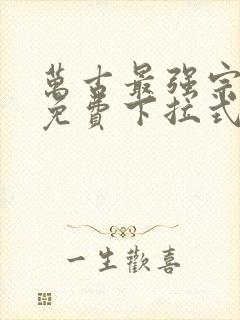 萬古最强宗
免費下拉式
一生歡喜